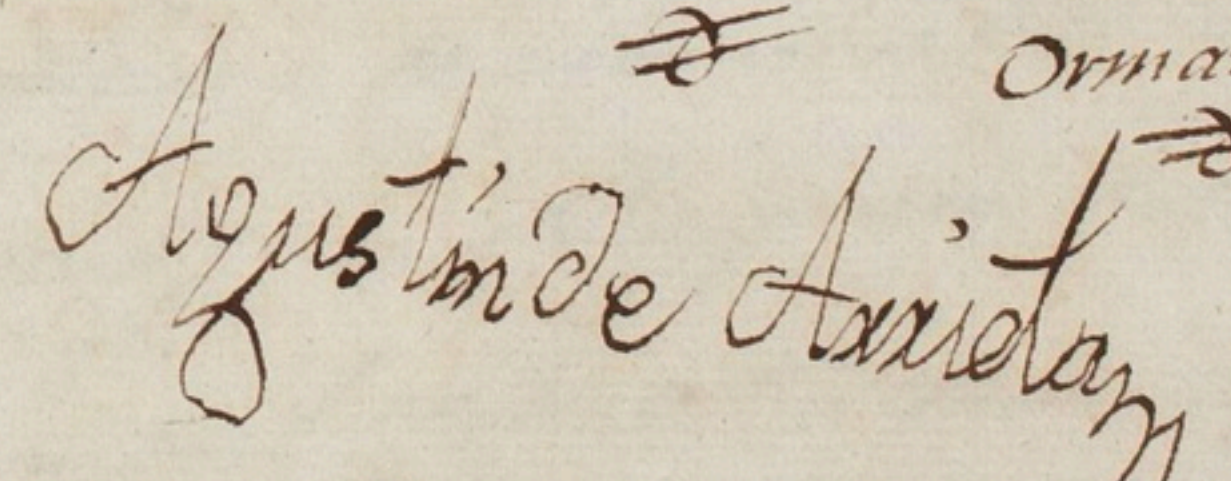 Orma
Agustin de Arrieta